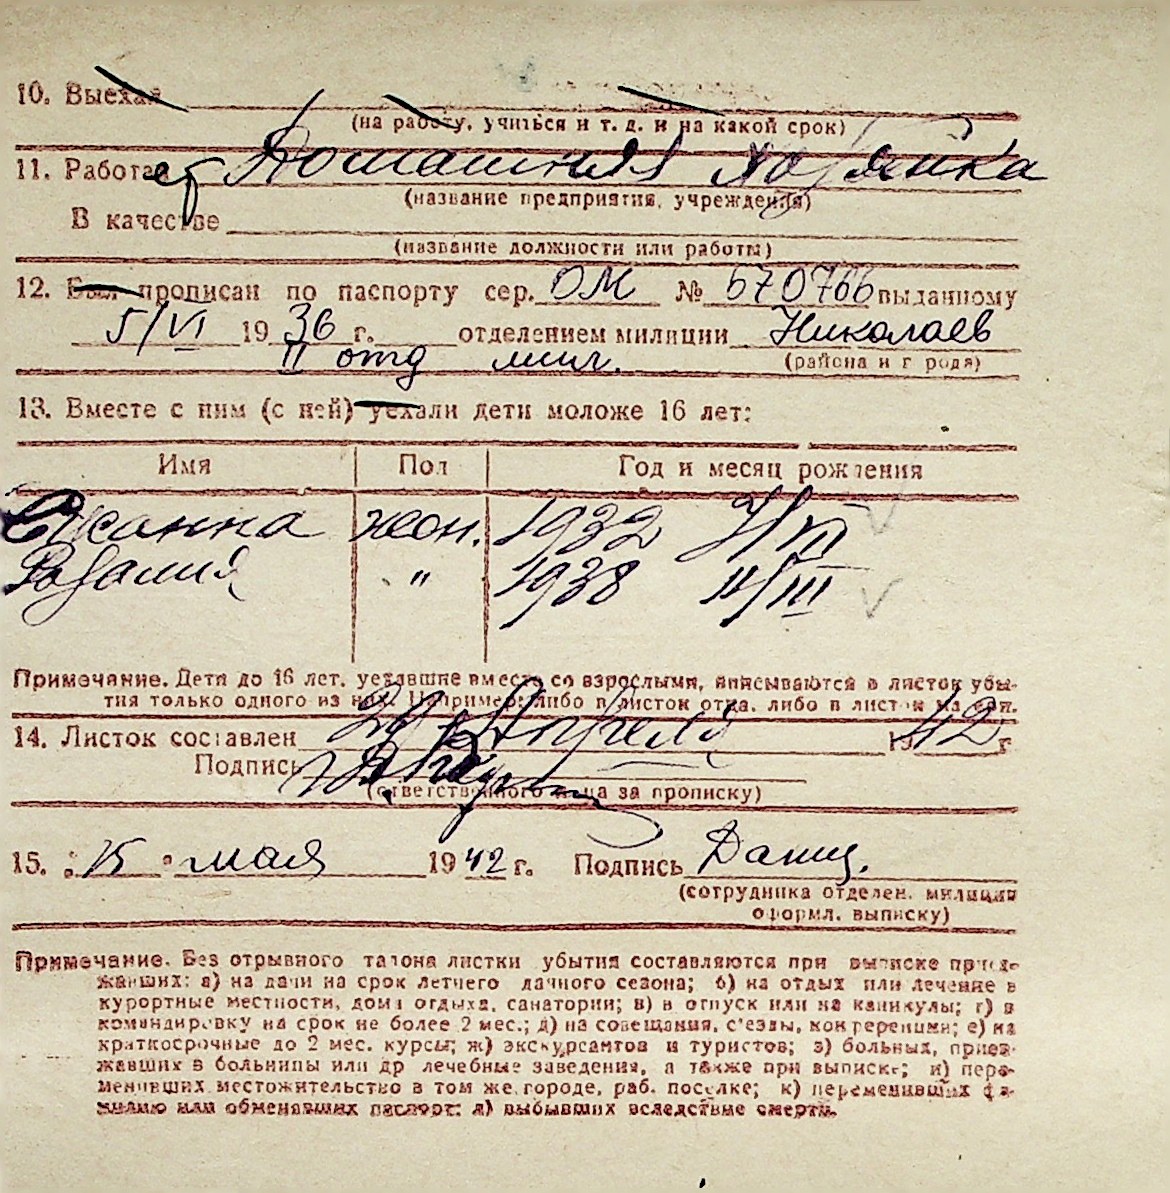 10. Выехал
(на работу, учиться и т. д. и на какой срок)
11. Работает Домашняя хозяйка
(название предприятия, учреждения)
В качестве
(название должности или работы)
12. Был прописан по паспорту сер. ОМ № 670766 выданному
5/VI 1936 г. отделением милиции Николаев
II отд мил. (района и г рода)
13. Вместе с ним (с ней) уехали дети моложе 16 лет:
Имя Пол Год и месяц рождения
Сусанна жен. 1932 7/VI
Розалия " 1938 11/III
Примечание. Дети до 16 лет, уехавшие вместе со взрослыми, вписываются в листок убы-
тия только одного из них. Например: либо в листок отца, либо в листок матери.
14. Листок составлен Апреля 1942 г
Подпись
(ответственного лица за прописку)
15. "15" мая 1942 г. Подпись Данц.
(сотрудника отделен. милиции
оформл. выписку)
Примечание. Без отрывного талона листки убытия составляются при выписке приез-
жавших: а) на дачи на срок летнего дачного сезона; б) на отдых или лечение в
курортные местности, дома отдыха, санатории; в) в отпуск или на каникулы; г) в
командировку на срок не более 2 мес.; д) на совещания, с'езды, конференции; е) на
краткосрочные до 2 мес. курсы; ж) экскурсантов и туристов; з) больных, приез-
жавших в больницы или др лечебные заведения, а также при выписке; и) пере-
менивших местожительство в том же городе, раб. поселке; к) переменивших фа-
милию или обменявших паспорт; л) выбывших вследствие смерти.